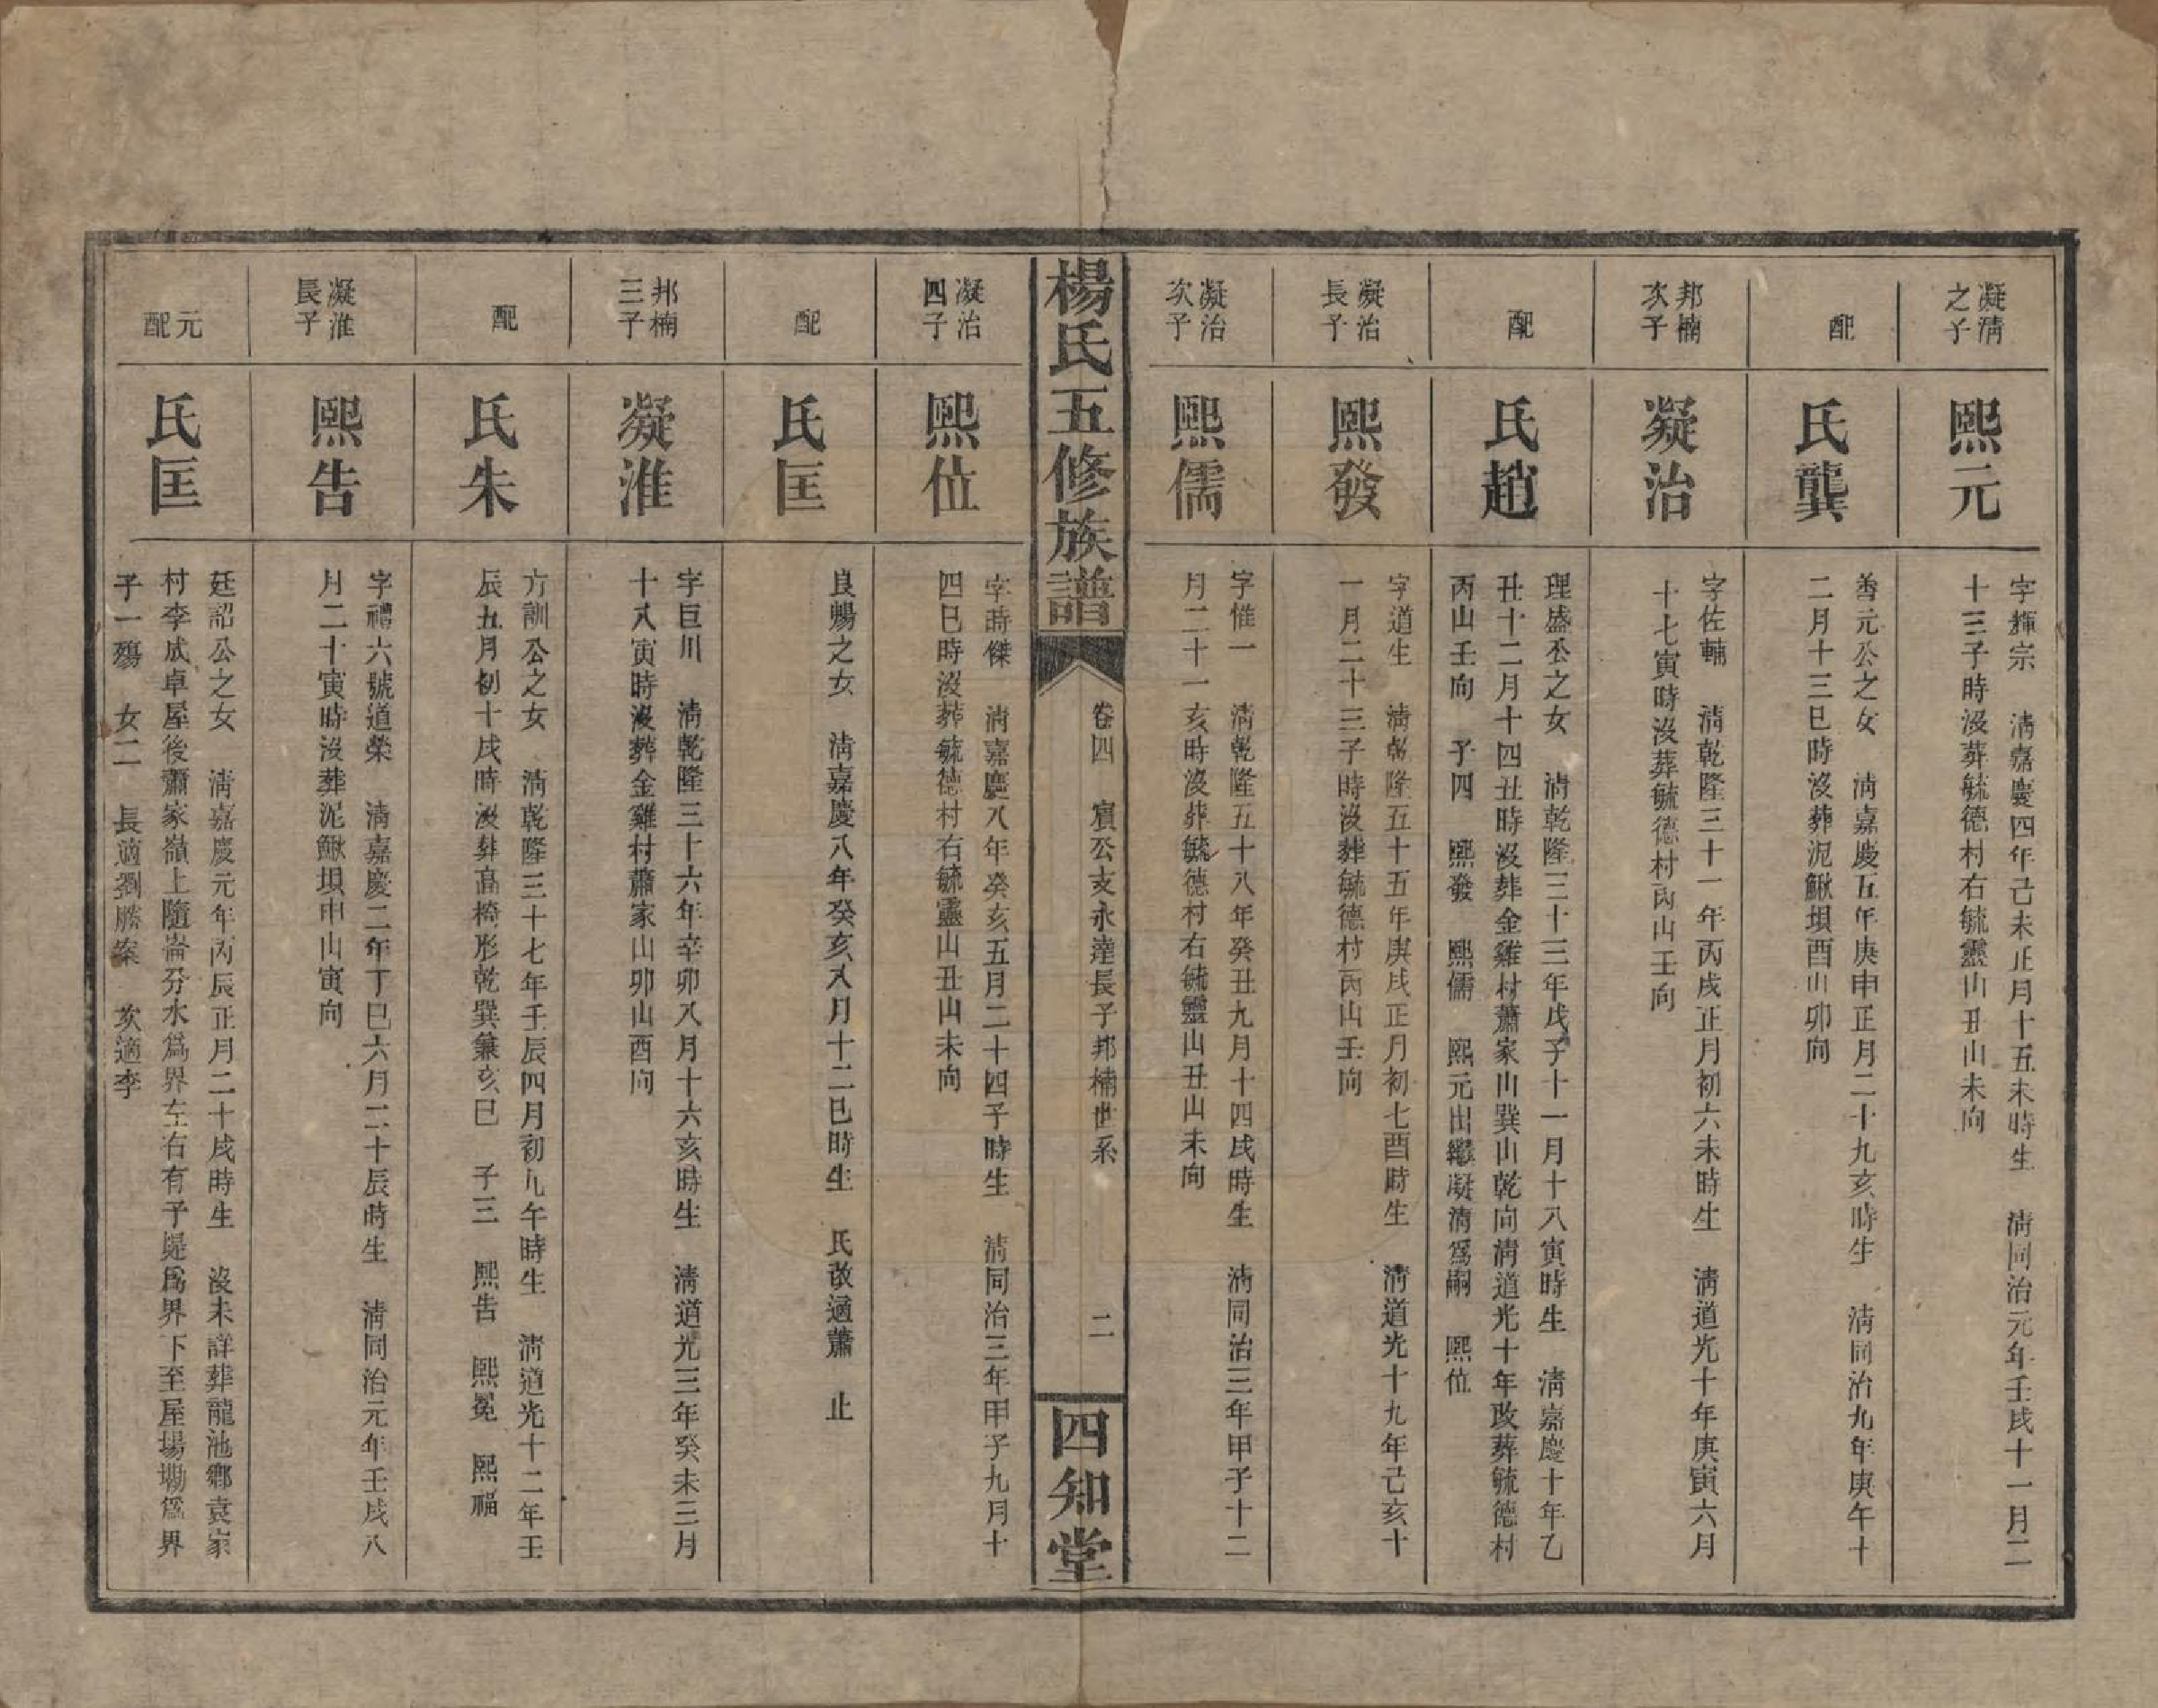 凝清
之子
熙元
字輝宗　清嘉慶四年己未正月十五未時生　清同治元年壬戌十一月二
十三子時沒葬毓德村右毓靈山丑山未向
配
氏龔
善元公之女　清嘉慶五年庚申正月二十九亥時生　清同治九年庚午十
二月十三巳時沒葬泥鰍垻酉山卯向
邦楠
次子
凝治
字佐輔　清乾隆三十一年丙戌正月初六未時生　清道光十年庚寅六月
十七寅時沒葬毓德村丙山壬向
配
氏趙
理盛公之女　清乾隆三十三年戊子十一月十八寅時生　清嘉慶十年乙
丑十二月十四丑時沒葬金雞村蕭家山巽山乾向清道光十年改葬毓德村
丙山壬向　子四　熙發　熙儒　熙元出繼凝清爲嗣　熙位
凝治
長子
熙發
字道生　清乾隆五十五年庚戌正月初七酉時生　清道光十九年己亥十
一月二十三子時沒葬毓德村丙山壬向
凝治
次子
熙儒
字惟一　清乾隆五十八年癸丑九月十四戌時生　清同治三年甲子十二
月二十一亥時沒葬毓德村右毓靈山丑山未向
楊氏五修族譜
卷四　賔公支永達長子邦楠世系　二
四知堂
凝治
四子
熙位
字時傑　清嘉慶八年癸亥五月二十四子時生　清同治三年甲子九月十
四巳時沒葬毓德村右毓靈山丑山未向
配
氏匡
良賜之女　清嘉慶八年癸亥八月十二巳時生　氏改適蕭　止
邦楠
三子
凝淮
字巨川　清乾隆三十六年辛卯八月十六亥時生　清道光三年癸未三月
十八寅時沒葬金雞村蕭家山卯山酉向
配
氏朱
方訓公之女　清乾隆三十七年壬辰四月初九午時生　清道光十二年壬
辰五月初十戌時沒葬高椅形乾巽兼亥巳　子三　熙告　熙冕　熙福
凝淮
長子
熙告
字禮六號道榮　清嘉慶二年丁巳六月二十辰時生　清同治元年壬戌八
月二十寅時沒葬泥鰍垻申山寅向
元
配
氏匡
廷詔公之女　清嘉慶元年丙辰正月二十戌時生　沒未詳葬龍池鄉袁家
村李成卓屋後蕭家嶺上隨崙分水爲界左右有子堤爲界下至屋場塝爲界
子一殤　女二　長適劉勝案　次適李